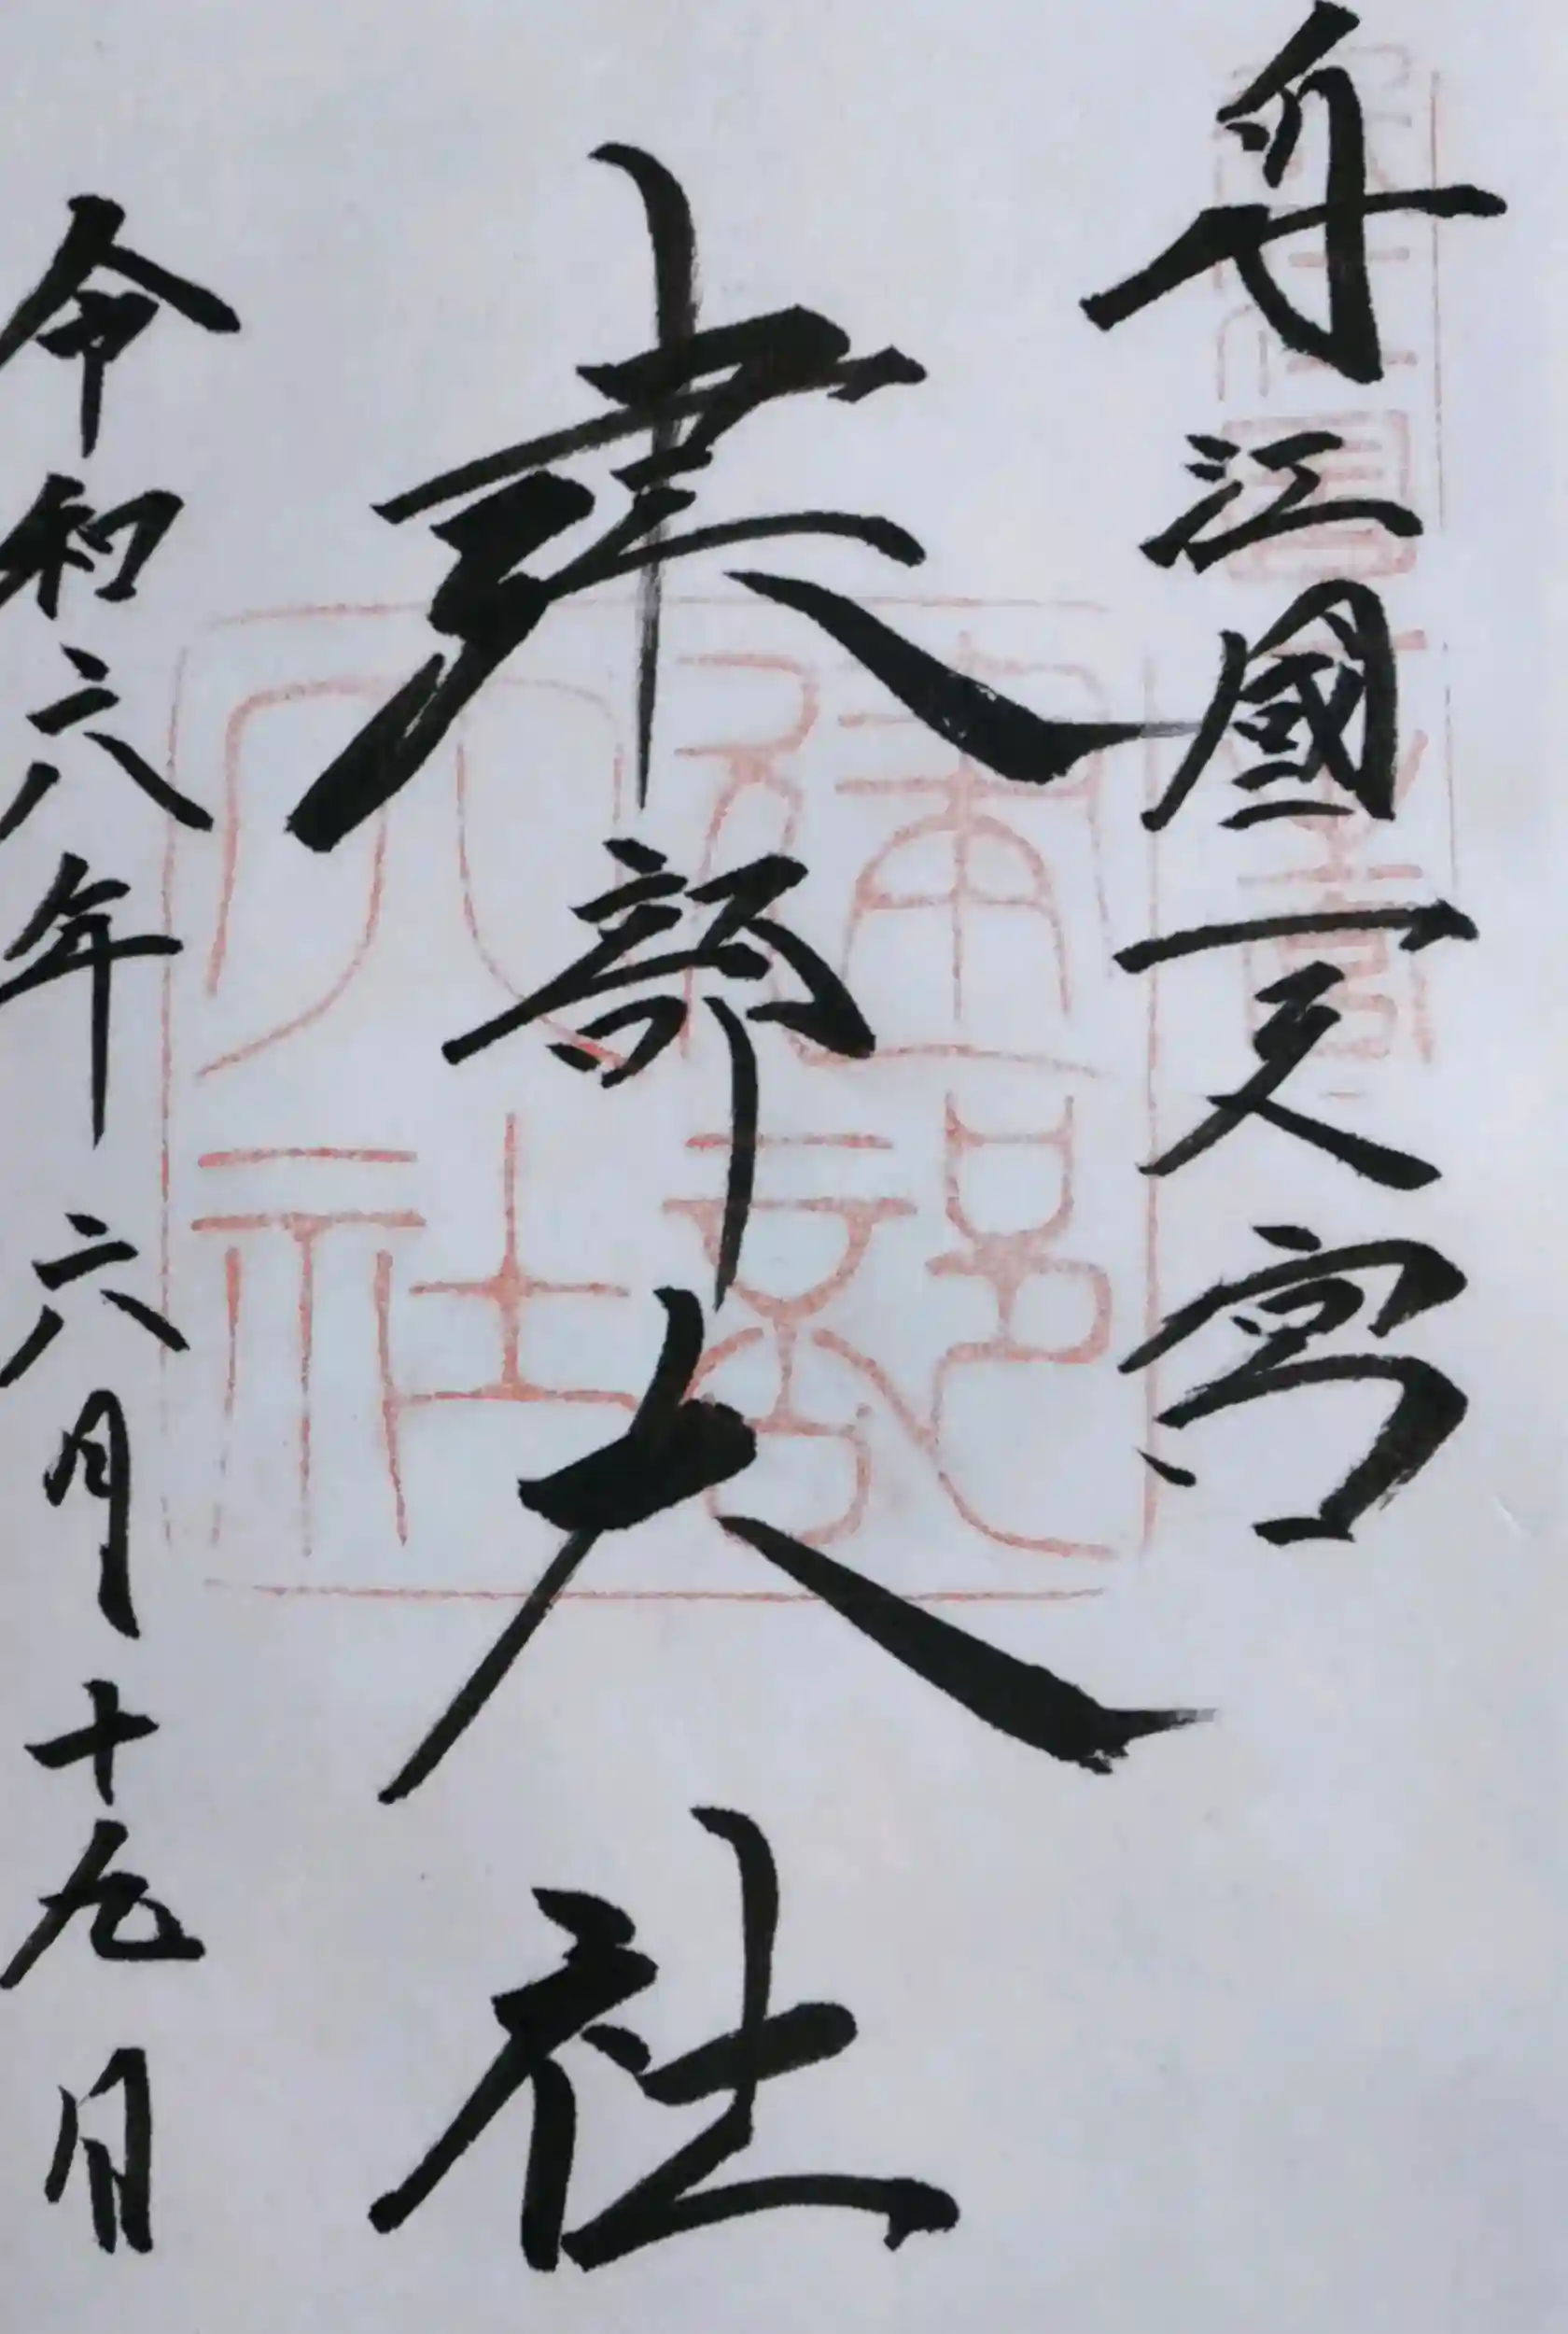 近江國一之宮
建部大社
令和六年六月十九日
建部
大社